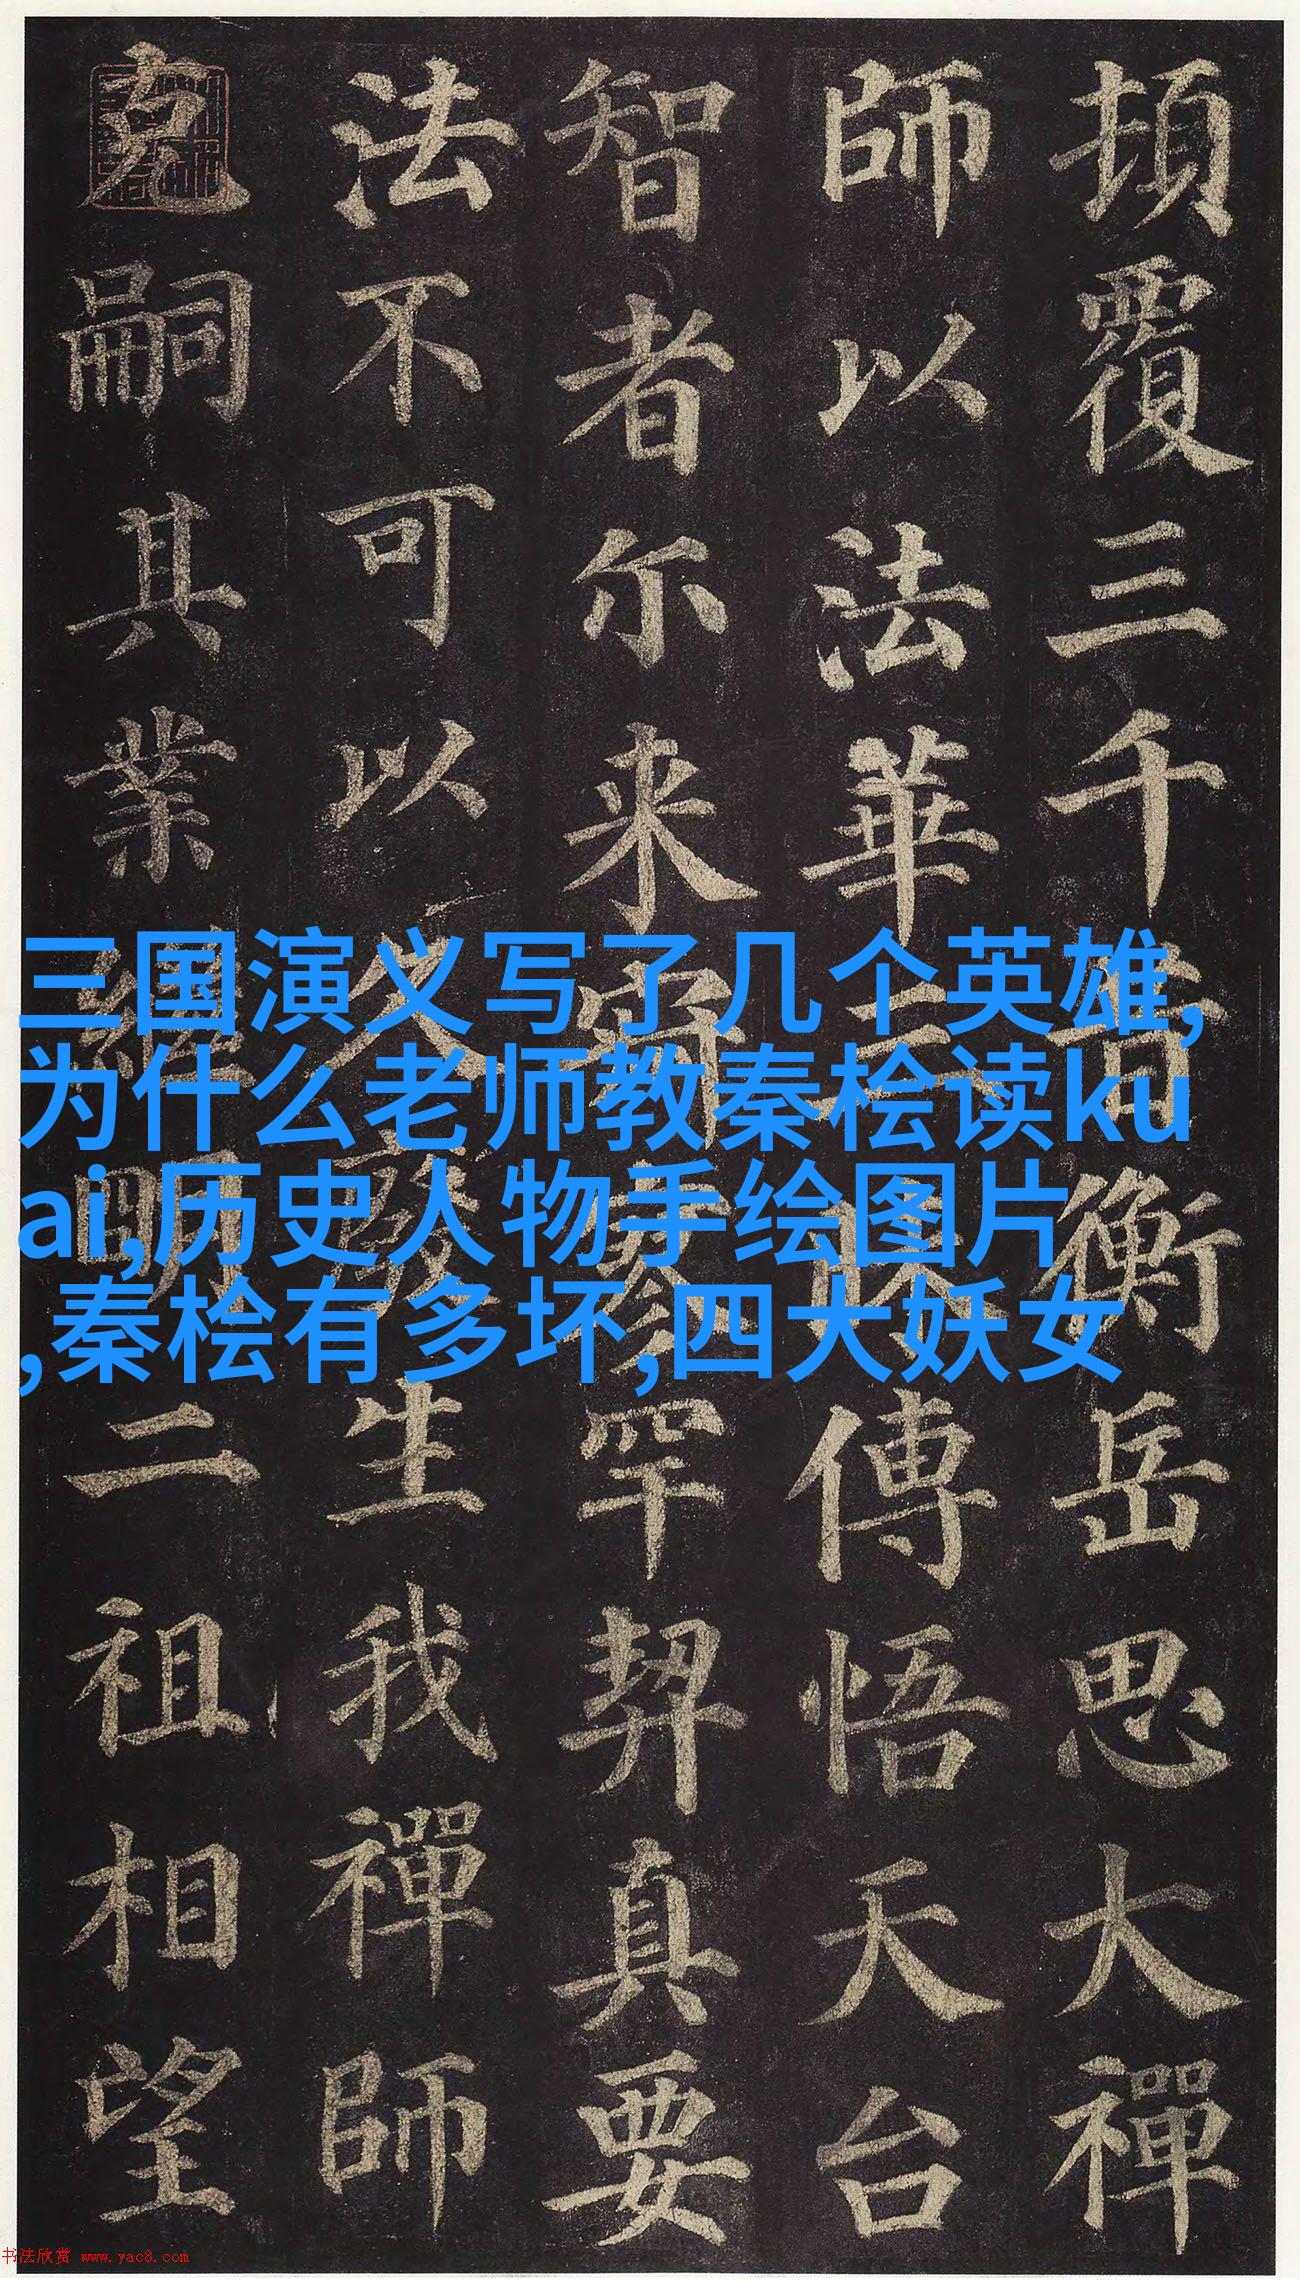 頓覆三千昔衡岳思大禪
師以法華三昧傳悟天台
智者尔来寂寥罕契真要
法不可以久廢生我禪師
克嗣其業繼明二祖相望
三国演义写了几个英雄,
为什么老师教秦桧读ku
ai,历史人物手绘图片
,秦桧有多坏,四大妖女
书法欣赏 www.yac8.com